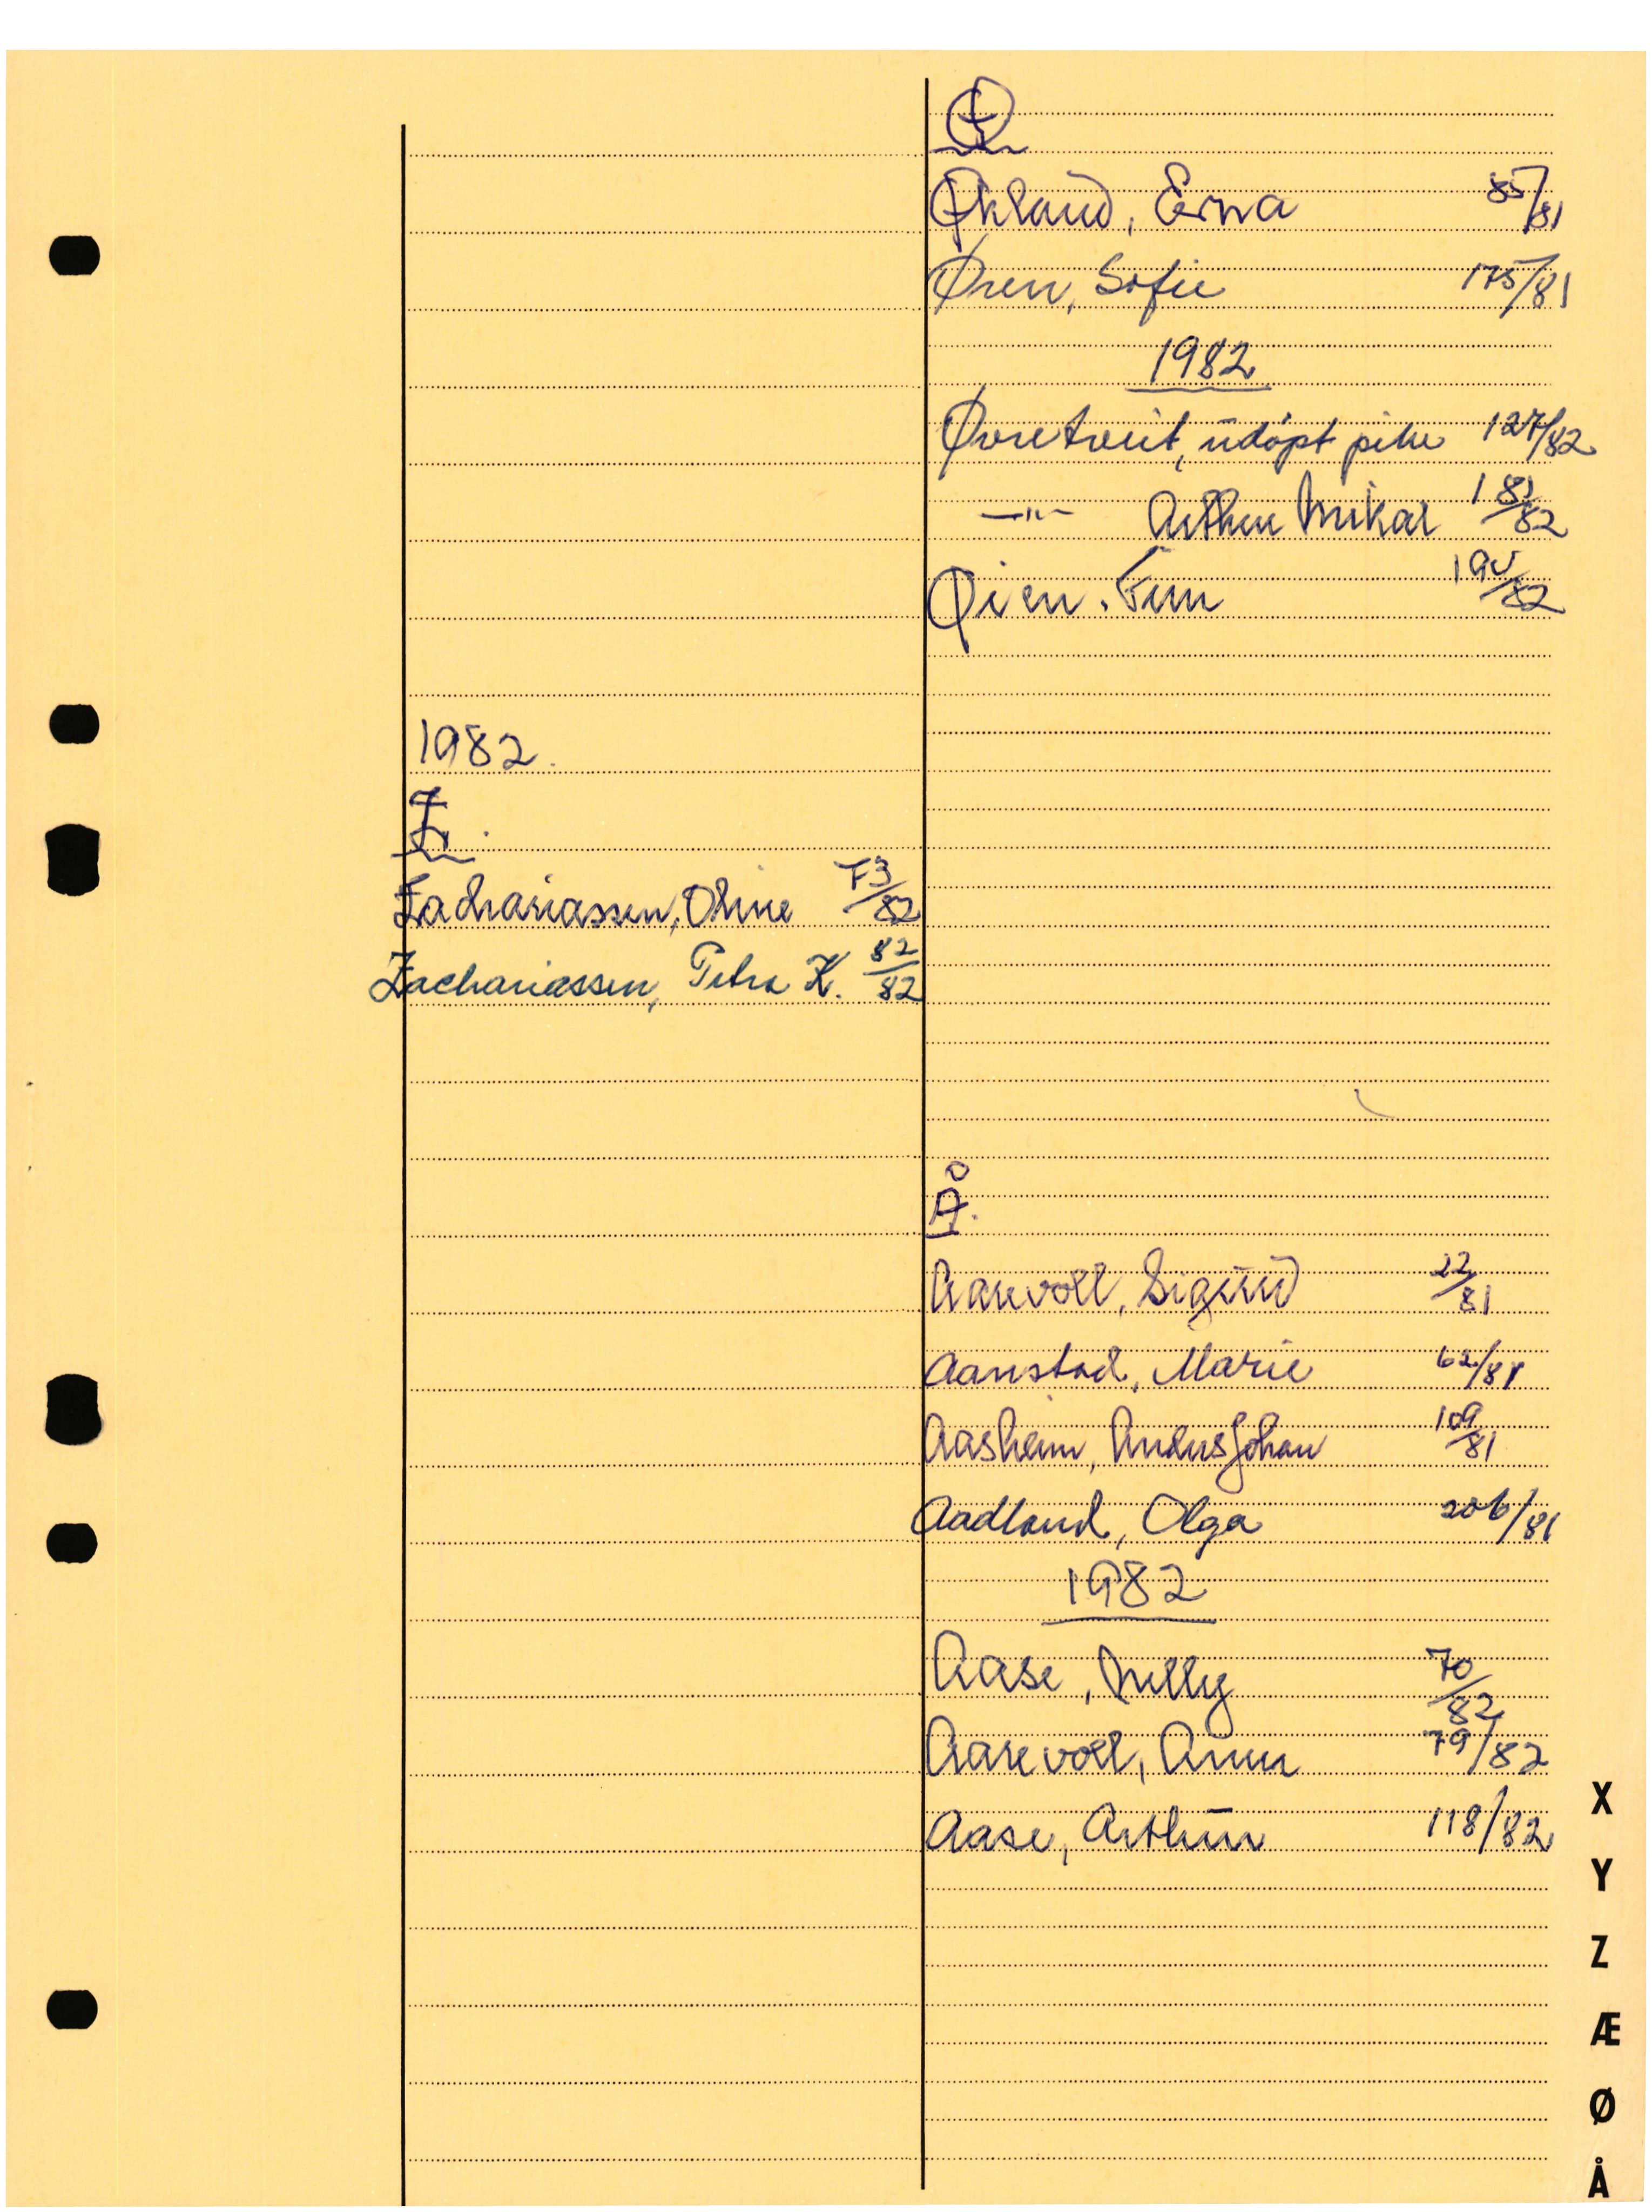 1982.
Z.
Zachariassen, Oline 73/82
Zachariassen, Petra K. 82/82
Ø
Økland, Erna 85/81
Øren, Sofie 175/81
1982
Øvretveit, udøpt pike 127/82
—"— Arthur Mikal 183/82
Øien. Finn /82
Å.
Aarevoll, Sigurd 22/81
Aanstad, Marie 62/81
Aasheim, Anders Johan 109/81
Aadland, Olga 206/81
1982
Aase, Nelly 70/82
Aarevoll, Anna 79/82
Aase, Arthur 118/82
X
Y
Z
Æ
Ø
Å